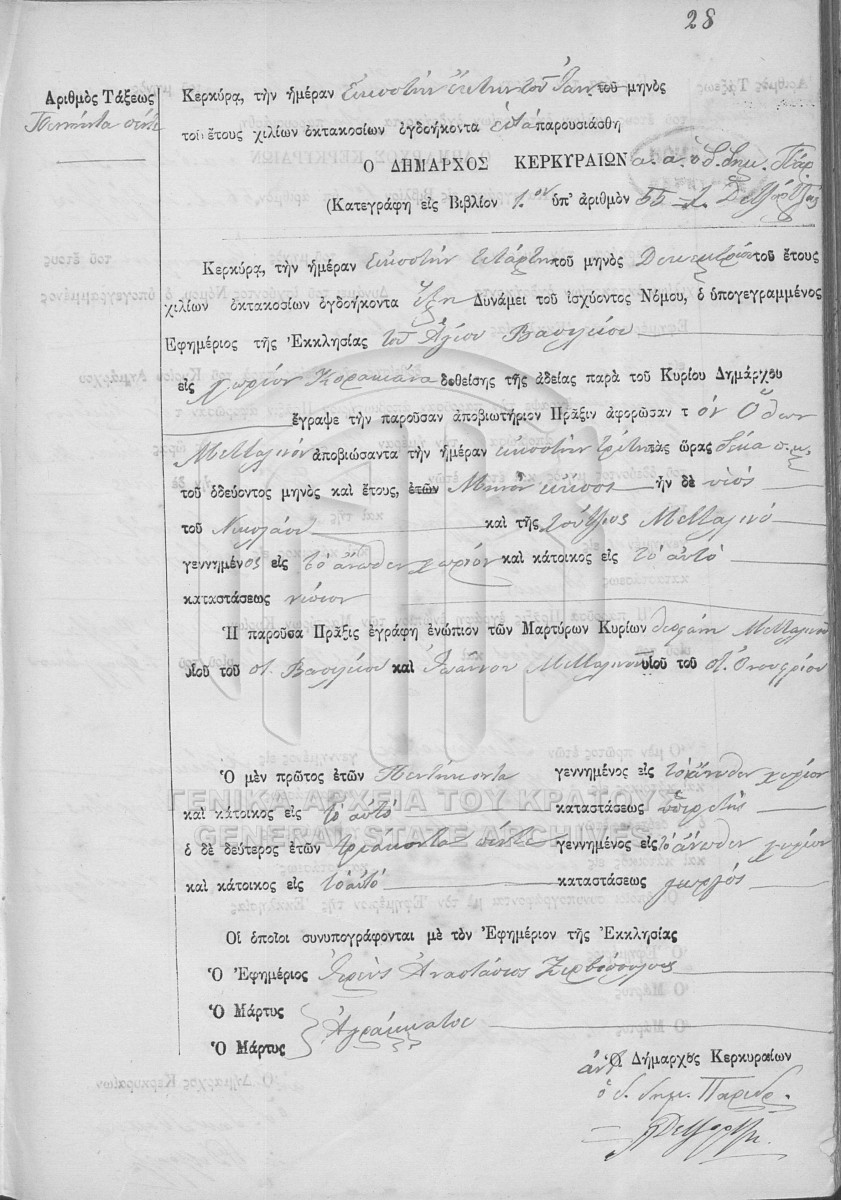 28
Ἀριθμὸς Τάξεως
Πενήντα πέντε
Κερκύρα, τὴν ἡμέραν Εἰκοστὴν ἕκτην τοῦ Ἰαν. τοῦ μηνὸς
τοῦ ἔτους χιλίων ὀκτακοσίων ὀγδοήκοντα ἑπτὰ παρουσιάσθη
Ὁ ΔΗΜΑΡΧΟΣ ΚΕΡΚΥΡΑΙΩΝ α. α. ὁ δ. δημ. Πάρ
(Κατεγράφη εἰς Βιβλίον 1.ον ὑπ' ἀριθμὸν 55
Κερκύρα, τὴν ἡμέραν Εἰκοστὴν τετάρτη τοῦ μηνὸς Δεκεμβρίου τοῦ ἔτους
χιλίων ὀκτακοσίων ὀγδοήκοντα ἕξη Δυνάμει τοῦ ἰσχύοντος Νόμου, ὁ ὑπογεγραμμένος
Ἐφημέριος τῆς Ἐκκλησίας τοῦ Ἁγίου Βασιλείου
εἰς χωρίον Κορακιάνα δοθείσης τῆς ἀδείας παρὰ τοῦ Κυρίου Δημάρχου
ἔγραψε τὴν παροῦσαν ἀποβιωτήριον Πρᾶξιν ἀφορῶσαν τ ὸν Ὄθων
Μεταλινὸν ἀποβιώσαντα τὴν ἡμέραν εἰκοστὴν τρίτη τὰς ὥρας δέκα π.μ.
τοῦ ὁδεύοντος μηνὸς καὶ ἔτους, ἐτῶν Μηνῶν εἴκοσι ἦν δὲ υἱὸς
τοῦ Νικολάου καὶ τῆς Μεταλινὸ
γεννημένος εἰς τὸ ἄνωθεν χωρίον καὶ κάτοικος εἰς τὸ αὐτὸ
καταστάσεως νήπιον
Ἡ παροῦσα Πρᾶξις ἐγράφη ἐνώπιον τῶν Μαρτύρων Κυρίων Στεφάνη Μεταλινοῦ
υἱοῦ τοῦ π. Βασιλείου καὶ Ἰωάννου Μεταλινοῦ υἱοῦ τοῦ π. Ὀνουφρίου
Ὁ μὲν πρῶτος ἐτῶν Πεντήκοντα γεννημένος εἰς τὸ ἄνωθεν χωρίον
καὶ κάτοικος εἰς τὸ αὐτὸ καταστάσεως ὑπηρέτης
ὁ δὲ δεύτερος ἐτῶν τριάκοντα πέντε γεννημένος εἰς τὸ ἄνωθεν χωρίον
καὶ κάτοικος εἰς τὸ αὐτὸ καταστάσεως γεωργὸς
Οἱ ὁποῖοι συνυπογράφονται μὲ τὸν Ἐφημέριον τῆς Ἐκκλησίας
Ὁ Ἐφημέριος Ἱερεὺς Ἀναστάσιος Ζερβόπουλος
Ὁ Μάρτυς
Ὁ Μάρτυς Ἀγράμματος
Ὁ Δήμαρχος Κερκυραίων
ἀντ
ὁ δ. δημ. Παρεδρ.
ΓΕΝΙΚΑ ΑΡΧΕΙΑ ΤΟΥ ΚΡΑΤΟΥΣ
GENERAL STATE ARCHIVES